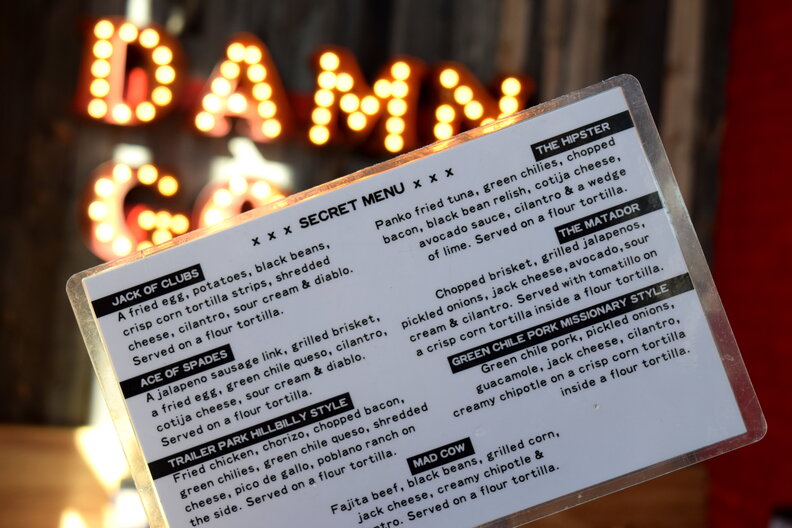 DAMN
GO
x x x SECRET MENU x x x
JACK OF CLUBS
A fried egg, potatoes, black beans,
crisp corn tortilla strips, shredded
cheese, cilantro, sour cream & diablo.
Served on a flour tortilla.
ACE OF SPADES
A jalapeno sausage link, grilled brisket,
a fried egg, green chile queso, cilantro,
cotija cheese, sour cream & diablo.
Served on a flour tortilla.
TRAILER PARK HILLBILLY STYLE
Fried chicken, chorizo, chopped bacon,
green chilies, green chile queso, shredded
cheese, pico de gallo, poblano ranch on
the side. Served on a flour tortilla.
THE HIPSTER
Panko fried tuna, green chilies, chopped
bacon, black bean relish, cotija cheese,
avocado sauce, cilantro & a wedge
of lime. Served on a flour tortilla.
THE MATADOR
Chopped brisket, grilled jalapenos,
pickled onions, jack cheese, avocado, sour
cream & cilantro. Served with tomatillo on
a crisp corn tortilla inside a flour tortilla.
GREEN CHILE PORK MISSIONARY STYLE
Green chile pork, pickled onions,
guacamole, jack cheese, cilantro,
creamy chipotle on a crisp corn tortilla
inside a flour tortilla.
MAD COW
Fajita beef, black beans, grilled corn,
jack cheese, creamy chipotle &
Served on a flour tortilla.